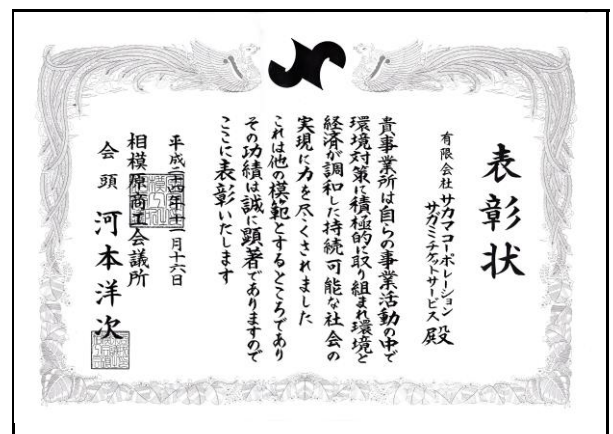 表彰状
有限会社 サカマコーポレーション
サガミチケットサービス 殿
貴事業所は自らの事業活動の中で
環境対策に積極的に取り組まれ環境と
経済が調和した持続可能な社会の
実現に力を尽くされました
これは他の模範とするところであり
その功績は誠に顕著でありますので
ここに表彰いたします
平成二十四年十一月十六日
相模原商工会議所
会頭 河本洋次